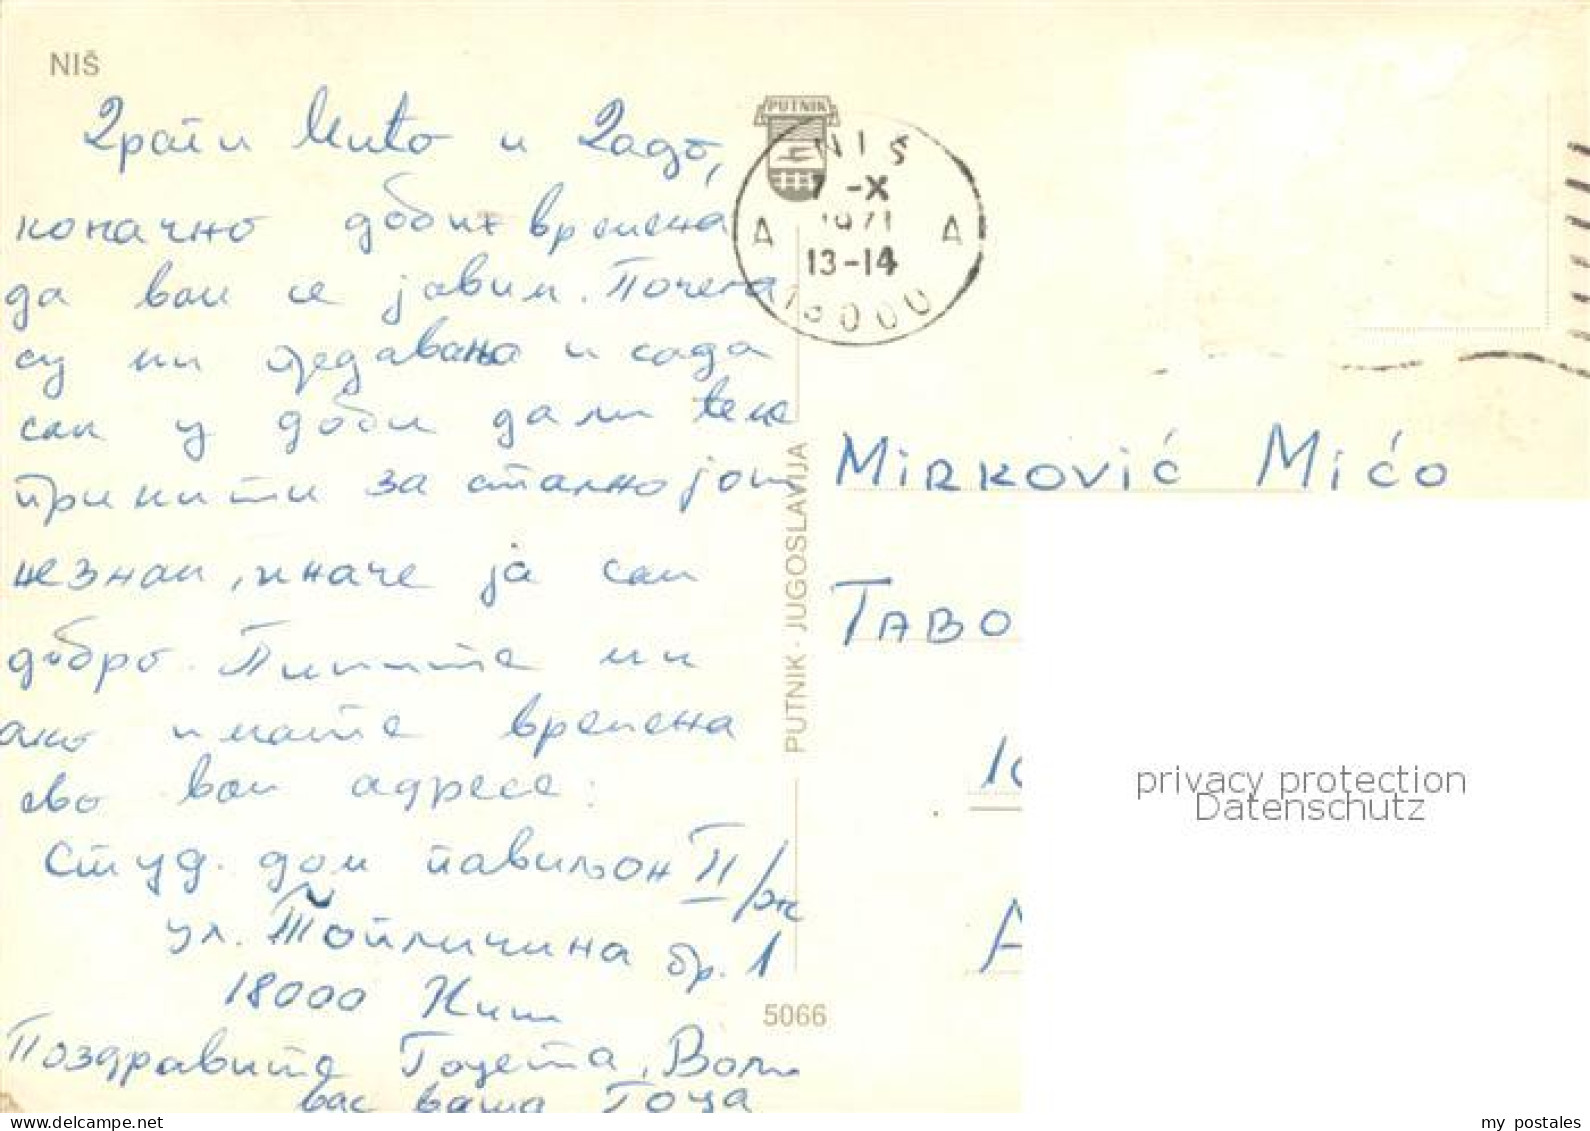 NIŠ
Драги Мићо и Радо,
коначно добих времена
да вам се јавим. Почела
су ми предавања и сада
сам у доби да ли ће ме
примити за стално још
незнам, иначе ја сам
добро. Пишите ми
ако имате времена
ево вам адресе:
Студ. дом павиљон II/
ул. Топличина бр. 1
18000 Ниш
Поздравите Гоцета, Воли
вас ваша Гоца
PUTNIK
NIŠ
7 -X
1971
13-14
A A
18000
PUTNIK - JUGOSLAVIJA
5066
MIRKOVIĆ MIĆO
TABO
privacy protection
Datenschutz
my postales